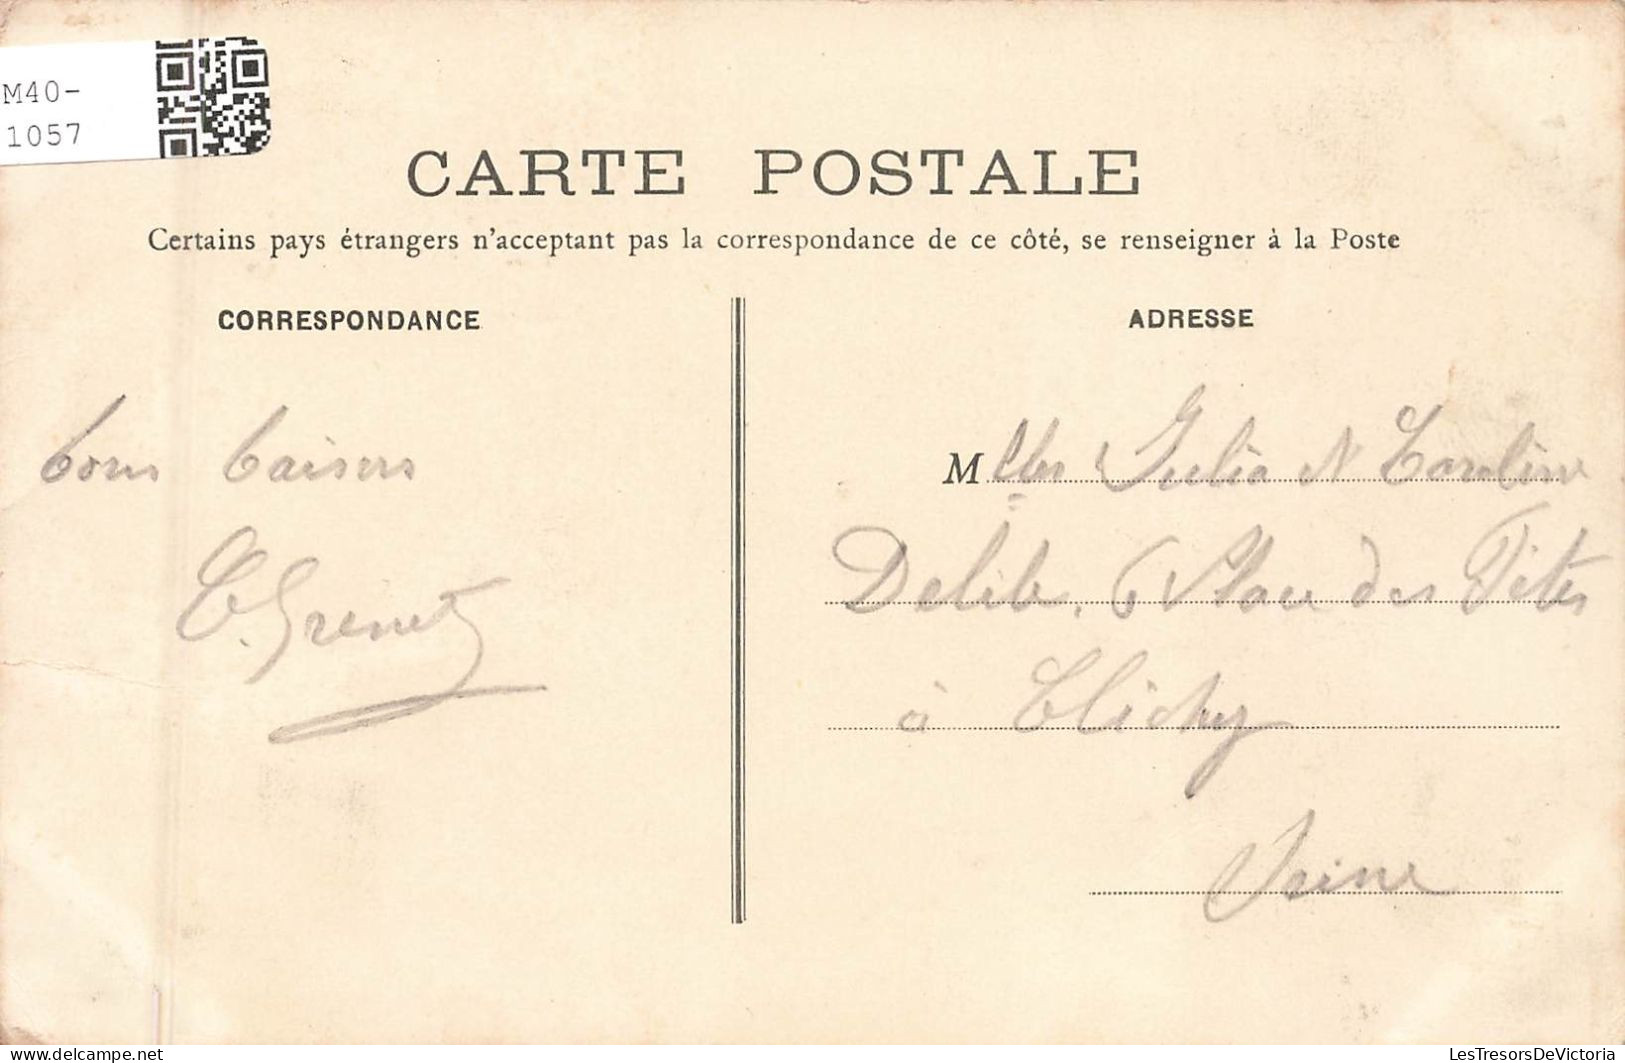 M40-
1057
CARTE POSTALE
Certains pays étrangers n'acceptant pas la correspondance de ce côté, se renseigner à la Poste
CORRESPONDANCE
bons baisers
C. Grenet
ADRESSE
Melles Julia et Caroline
6 Place des Fêtes
à Clichy
Seine
delcampe.net
LesTresorsDeVictoria